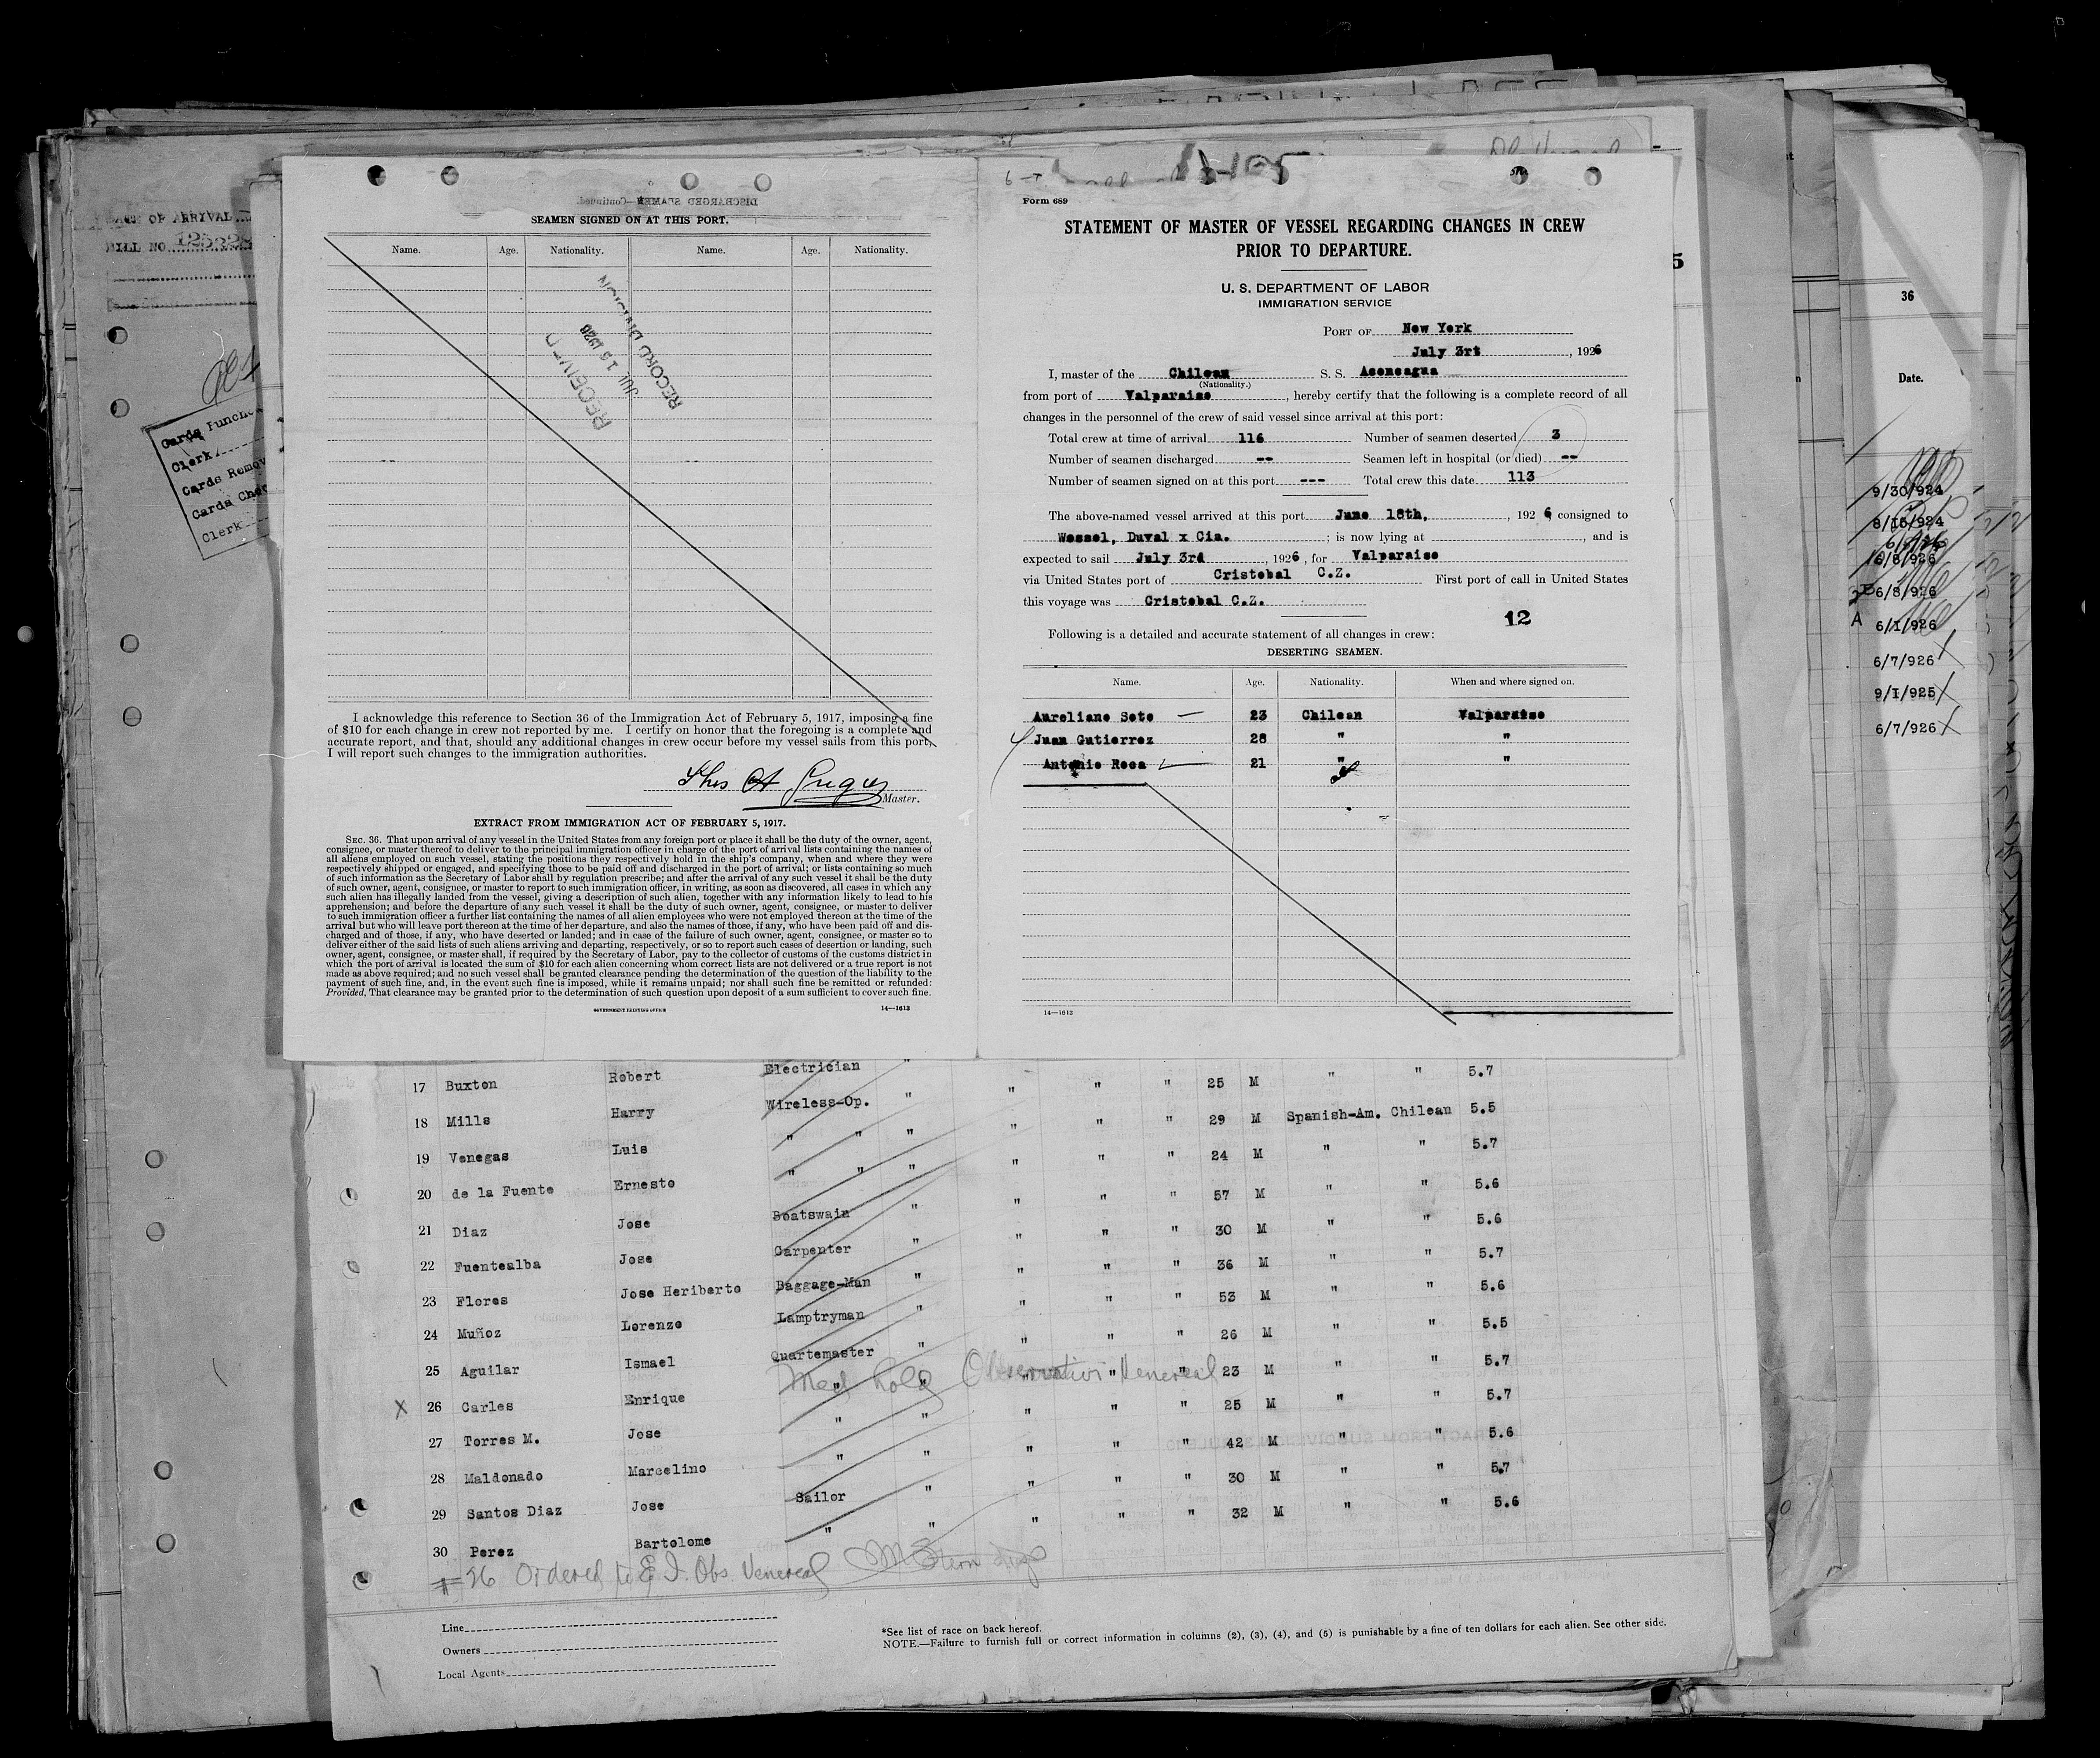 OF ARRIVAL
BILL NO. 125328
Cards Punched
Clerk
Cards Remov
Cards Chec
Clerk
DISCHARGED SEAMEN—Continued.
SEAMEN SIGNED ON AT THIS PORT.
Name. Age. Nationality. Name. Age. Nationality.
RECEIVED
JUL 13 1926
RECORD DIVISION
I acknowledge this reference to Section 36 of the Immigration Act of February 5, 1917, imposing a fine
of $10 for each change in crew not reported by me. I certify on honor that the foregoing is a complete and
accurate report, and that, should any additional changes in crew occur before my vessel sails from this port,
I will report such changes to the immigration authorities.
Master.
EXTRACT FROM IMMIGRATION ACT OF FEBRUARY 5, 1917.
SEC. 36. That upon arrival of any vessel in the United States from any foreign port or place it shall be the duty of the owner, agent,
consignee, or master thereof to deliver to the principal immigration officer in charge of the port of arrival lists containing the names of
all aliens employed on such vessel, stating the positions they respectively hold in the ship's company, when and where they were
respectively shipped or engaged, and specifying those to be paid off and discharged in the port of arrival; or lists containing so much
of such information as the Secretary of Labor shall by regulation prescribe; and after the arrival of any such vessel it shall be the duty
of such owner, agent, consignee, or master to report to such immigration officer, in writing, as soon as discovered, all cases in which any
such alien has illegally landed from the vessel, giving a description of such alien, together with any information likely to lead to his
apprehension; and before the departure of any such vessel it shall be the duty of such owner, agent, consignee, or master to deliver
to such immigration officer a further list containing the names of all alien employees who were not employed thereon at the time of the
arrival but who will leave port thereon at the time of her departure, and also the names of those, if any, who have been paid off and dis-
charged and of those, if any, who have deserted or landed; and in case of the failure of such owner, agent, consignee, or master so to
deliver either of the said lists of such aliens arriving and departing, respectively, or so to report such cases of desertion or landing, such
owner, agent, consignee, or master shall, if required by the Secretary of Labor, pay to the collector of customs of the customs district in
which the port of arrival is located the sum of $10 for each alien concerning whom correct lists are not delivered or a true report is not
made as above required; and no such vessel shall be granted clearance pending the determination of the question of the liability to the
payment of such fine, and, in the event such fine is imposed, while it remains unpaid; nor shall such fine be remitted or refunded:
Provided, That clearance may be granted prior to the determination of such question upon deposit of a sum sufficient to cover such fine.
GOVERNMENT PRINTING OFFICE 14—1613
Form 689
STATEMENT OF MASTER OF VESSEL REGARDING CHANGES IN CREW
PRIOR TO DEPARTURE.
U. S. DEPARTMENT OF LABOR
IMMIGRATION SERVICE
PORT OF New York
July 3rd, 1926
I, master of the Chilean S. S. Aconcagua
(Nationality.)
from port of Valparaiso, hereby certify that the following is a complete record of all
changes in the personnel of the crew of said vessel since arrival at this port:
Total crew at time of arrival 116 Number of seamen deserted 3
Number of seamen discharged -- Seamen left in hospital (or died) --
Number of seamen signed on at this port --- Total crew this date 113
The above-named vessel arrived at this port June 18th, , 1926, consigned to
Wessel, Duval x Cia. ; is now lying at , and is
expected to sail July 3rd, 1926, for Valparaiso
via United States port of Cristobal C.Z. First port of call in United States
this voyage was Cristobal C.Z.
12
Following is a detailed and accurate statement of all changes in crew:
DESERTING SEAMEN.
Name. Age. Nationality. When and where signed on.
Aureliano Soto 23 Chilean Valparaiso
Juan Gutierrez 28 " "
Antonio Roca 21 " "
14—1613
5
36
Date.
9/30/924
8/15/924
6/8/926
6/8/926
A 6/1/926
6/7/926
9/1/925
6/7/926
17 Buxton Robert Electrician " " " " 25 M " " 5.7
18 Mills Harry Wireless-Op. " " " " 29 M Spanish-Am. Chilean 5.5
19 Venegas Luis " " " " " " 24 M " " 5.7
20 de la Fuente Ernesto " " " " " " 57 M " " 5.6
21 Diaz Jose Boatswain " " " " 30 M " " 5.6
22 Fuentealba Jose Carpenter " " " " 36 M " " 5.7
23 Flores Jose Heriberto Baggage-Man " " " " 53 M " " 5.6
24 Muñoz Lorenzo Lamptryman " " " " 26 M " " 5.5
25 Aguilar Ismael Quartemaster " " " " 23 M " " 5.7
Med hold Observation Venereal
X 26 Carles Enrique " " " " " 25 M " " 5.7
27 Torres M. Jose " " " " " 42 M " " 5.6
28 Maldonado Marcelino " " " " " 30 M " " 5.7
29 Santos Diaz Jose Sailor " " " " 32 M " " 5.6
30 Perez Bartolome " "
# 26 Ordered to E. I. Obs. Venereal
Line
Owners
Local Agents
*See list of race on back hereof.
NOTE.—Failure to furnish full or correct information in columns (2), (3), (4), and (5) is punishable by a fine of ten dollars for each alien. See other side.